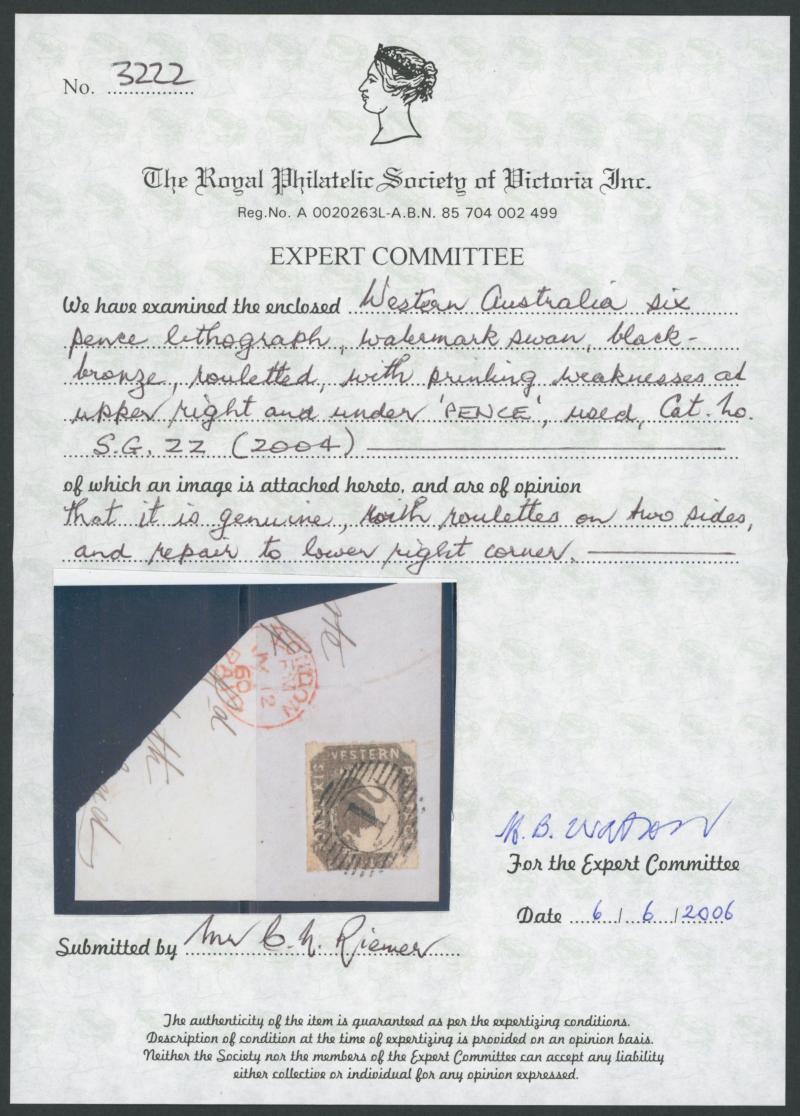 No. 3222
The Royal Philatelic Society of Victoria Inc.
Reg.No. A 0020263L-A.B.N. 85 704 002 499
EXPERT COMMITTEE
We have examined the enclosed Western Australia six
pence lithograph, watermark swan, black-
bronze, rouletted, with printing weaknesses at
upper right and under 'PENCE', used, Cat. No.
S.G. 22 (2004)
of which an image is attached hereto, and are of opinion
that it is genuine, with roulettes on two sides,
and repair to lower right corner.
LONDON
12
60
PAID
WESTERN
SIX
1
M. B. WATSON
For the Expert Committee
Date 6 / 6 / 2006
Submitted by Mr C. N. Riemer
The authenticity of the item is guaranteed as per the expertizing conditions.
Description of condition at the time of expertizing is provided on an opinion basis.
Neither the Society nor the members of the Expert Committee can accept any liability
either collective or individual for any opinion expressed.